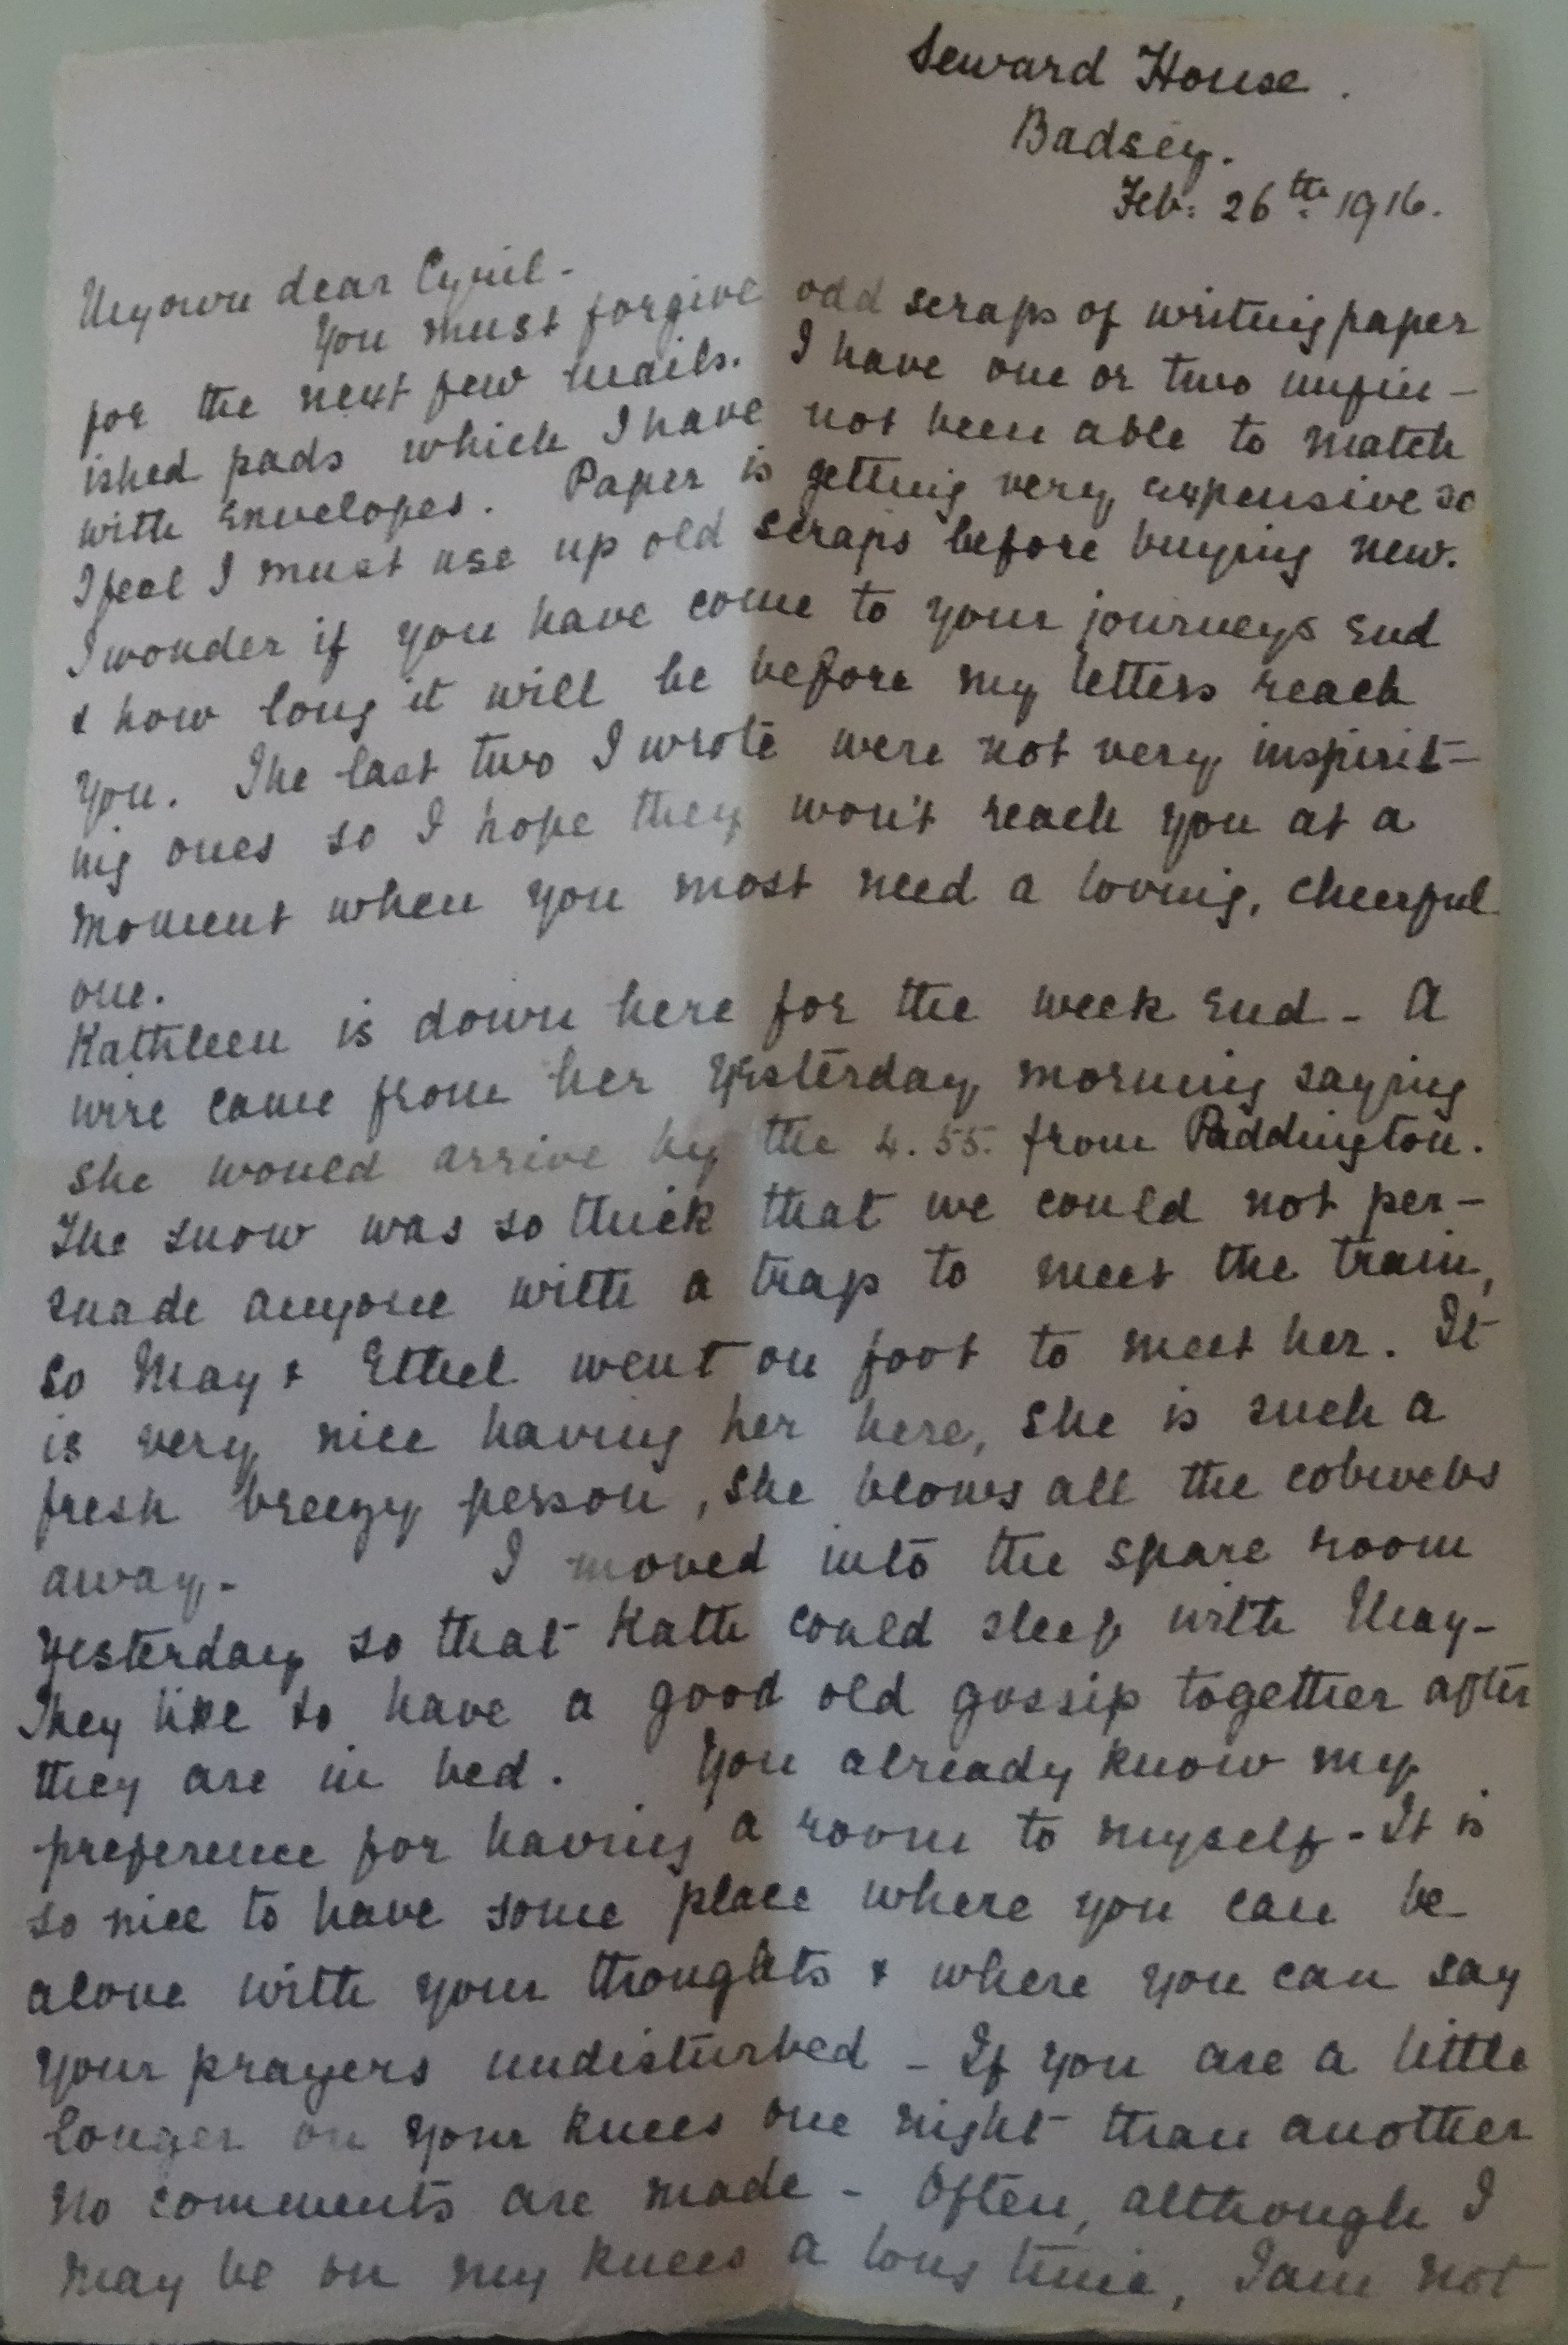 Seward House.
Badsey.
Feb: 26th 1916.
My own dear Cyril -
You must forgive odd scraps of writing paper
for the next few mails. I have one or two unfin-
ished pads which I have not been able to match
with envelopes. Paper is getting very expensive so
I feel I must use up old scraps before buying new.
I wonder if you have come to your journeys end
& how long it will be before my letters reach
you. The last two I wrote were not very inspirit-
ing ones so I hope they won't reach you at a
moment when you most need a loving, cheerful
one.
Kathleen is down here for the week end - A
wire came from her yesterday morning saying
she would arrive by the 4.55. from Paddington.
The snow was so thick that we could not per-
suade anyone with a trap to meet the train,
so May & Ethel went on foot to meet her. It
is very nice having her here, she is such a
fresh breezy person, she blows all the cobwebs
away - I moved into the spare room
yesterday so that Kath could sleep with May -
They like to have a good old gossip together after
they are in bed. You already know my
preference for having a room to myself - It is
so nice to have some place where you can be
alone with your thoughts & where you can say
your prayers undisturbed - If you are a little
longer on your knees one night than another
no comments are made - Often, although I
may be on my knees a long time, I am not